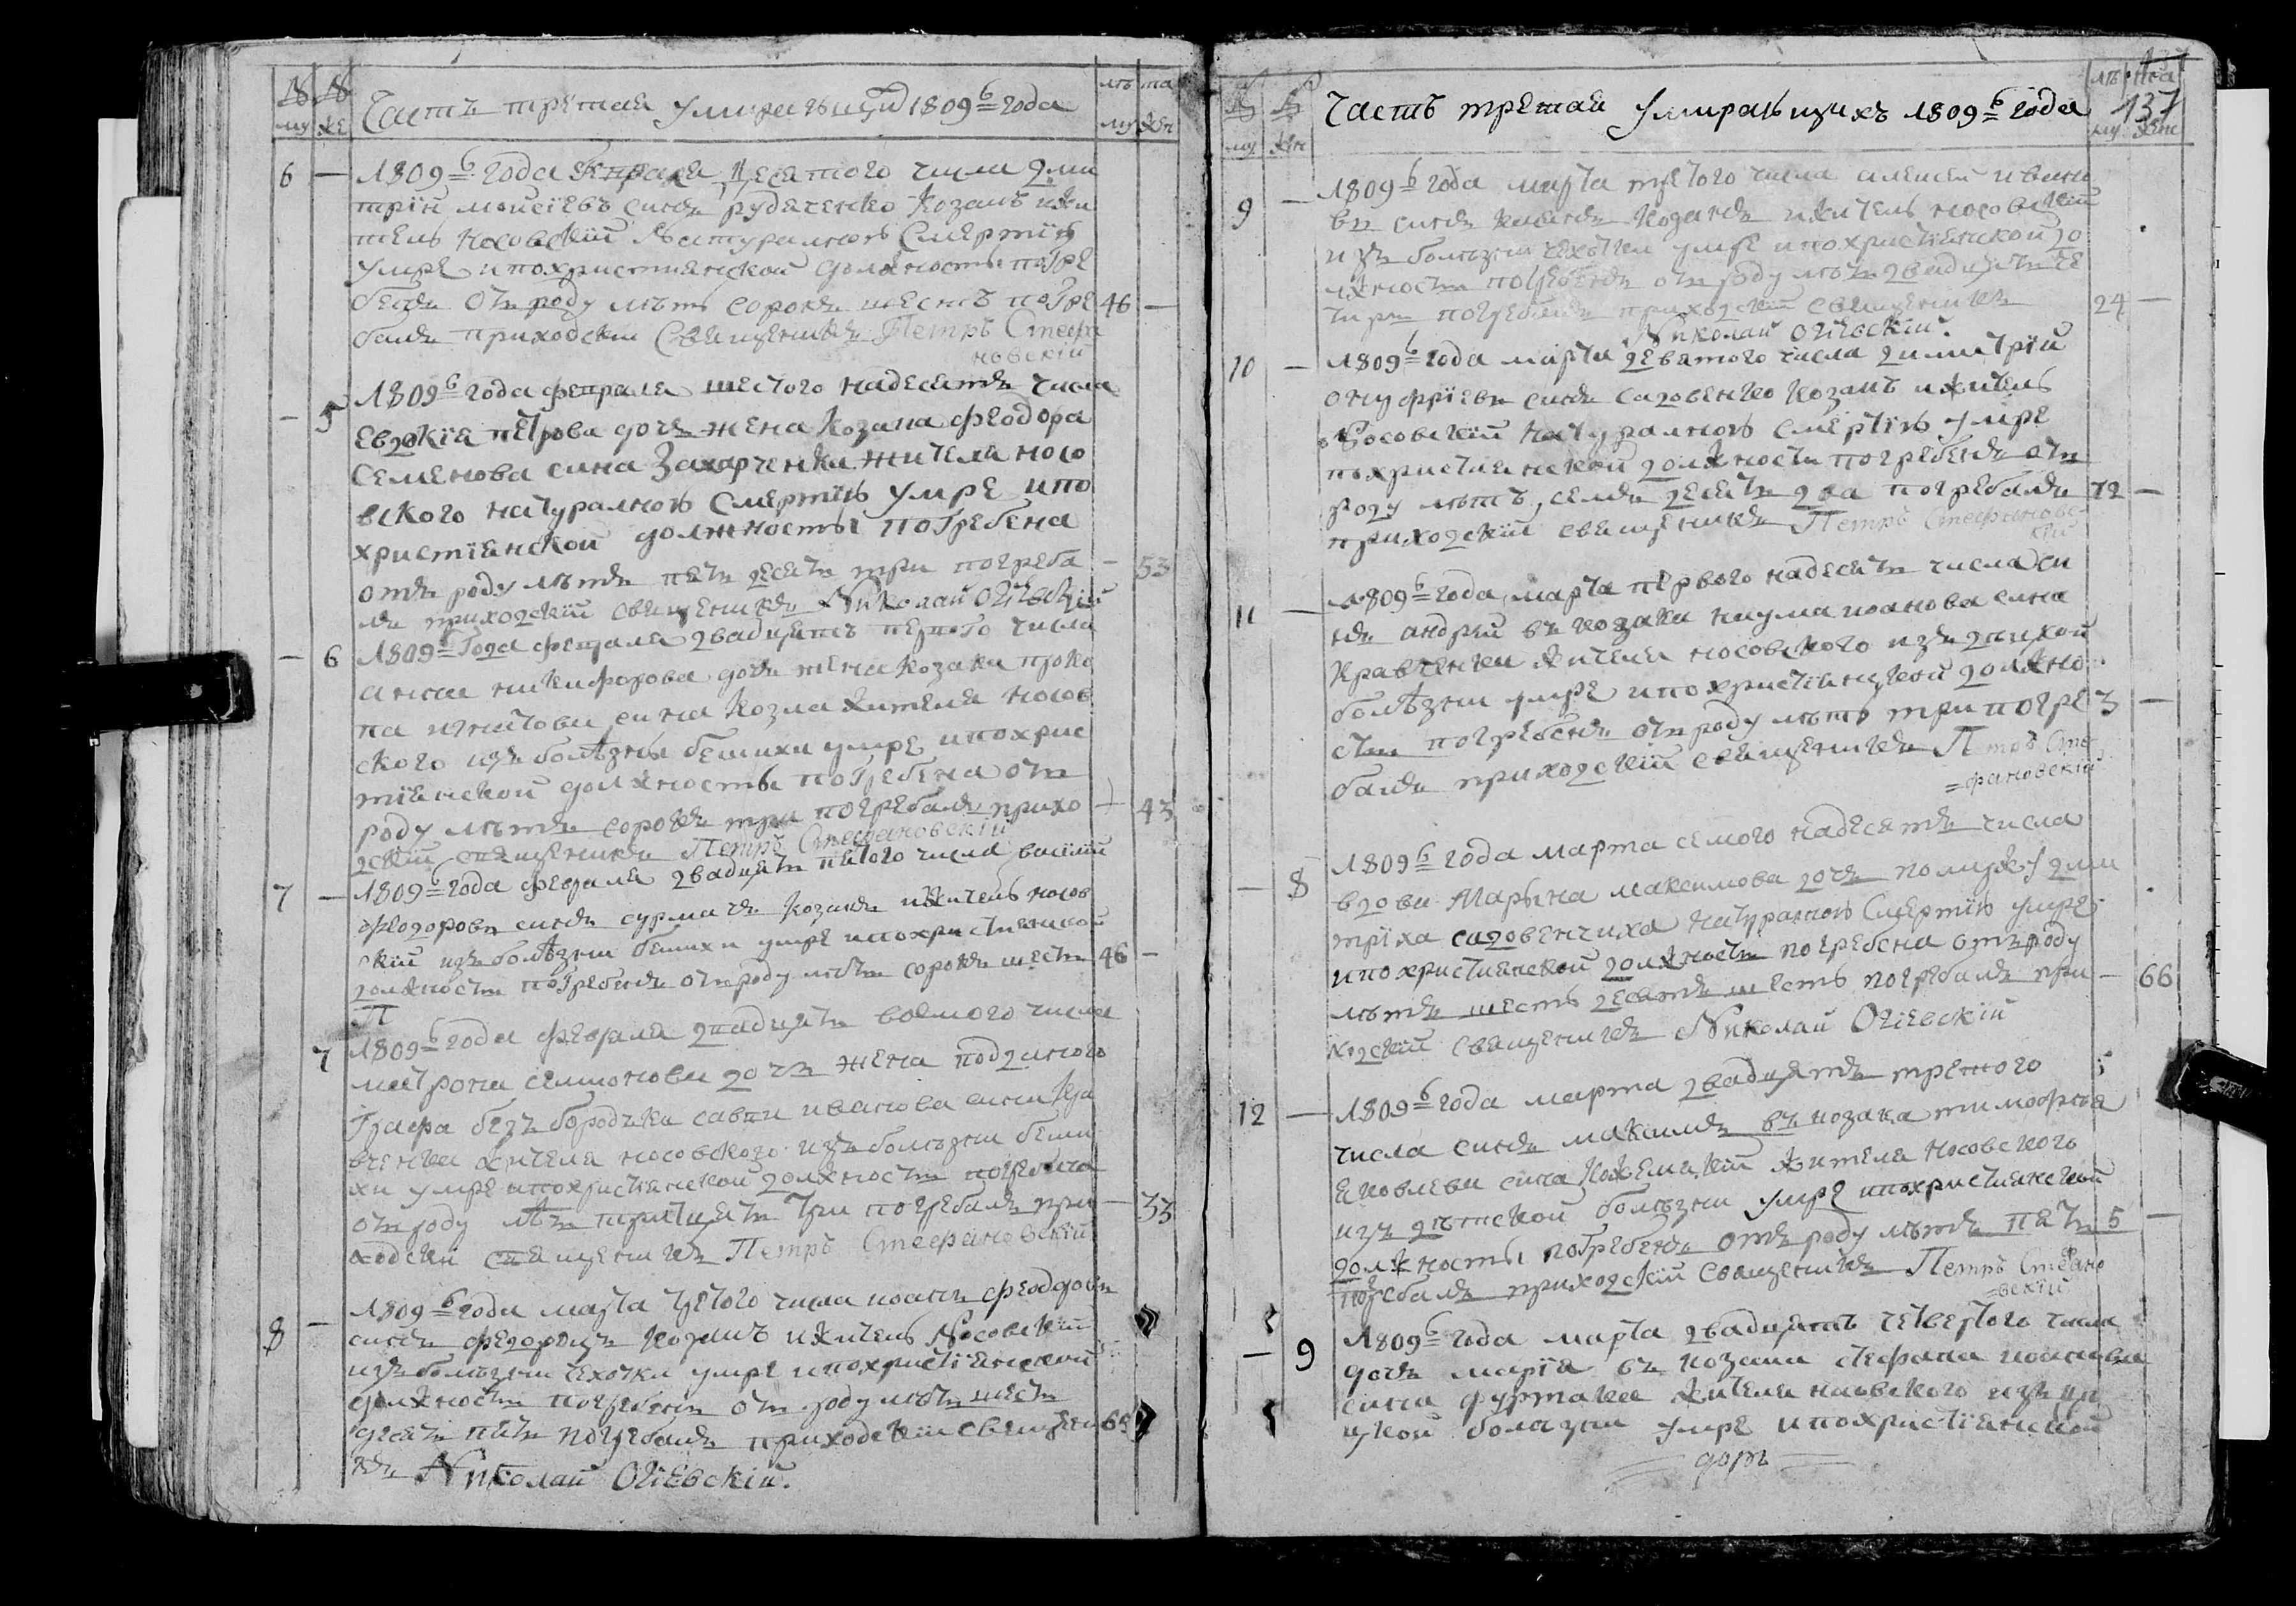 Часть третая умиравщихъ 1809 года
му же лѣ та му жен
6 — 1809 года Февраля десятого числа Дми
трій моисіевъ синъ рудаченко козакъ ижи
тель носовскій натуралною Смертію
умре ипохристиянской должности погре
бенъ отъ роду лѣтъ сорокъ шесть погре 46 —
балъ приходскій Священикъ Петръ Стефа
новскій
— 5 1809 года февраля шестого надесятъ числа
Евдокія петрова дочъ жена козака феодора
Семенова сина Захарченка жителя носо
вского натуралною Смертію умре ипо
христіянской должносты погребена
отъ роду лѣтъ пять десятъ три погреба — 53
лъ приходскій священикъ Николай Огіевскій
— 6 1809 Года февраля двадцять первого числа
анна никифорова дочъ жена козака проко
па игнатова сина козла жителя носов
ского изъ болѣзны бешихи умре ипохрис
тіянской должносты погребена отъ
роду лѣтъ сорокъ три погребалъ прихо — 43
дскій священикъ Петръ Стефановскій
7 — 1809 года февраля двадцять пятого числа василій
феодоровъ синъ сурмачъ козакъ ижитель носов
скій изъ болѣзни бешихи умре ипохристиянской
должности погребенъ отъ роду лѣтъ сорокъ шесть 46 —
П
7 1809 года февраля двадцять восмого числа
матрона симонова дочъ жена подданого
Графа безъ бородъка савы иванова сина кра
вченка жителя носовского изъ болѣзни беши
хи умре ипохристиянской должности погребена
отъ роду лѣтъ тритцять три погребалъ при — 33
ходскій священикъ Петръ Стефановскій
8 — 1809 года марта третого числа иоанъ феодоровъ
синъ федорецъ козакъ ижитель Носовскій
изъ болѣзни чехотки умре ипохристіянской
должности погребенъ отъ роду лѣтъ шесть
десятъ пять погребалъ приходскій священи 65
къ Николай Огіевскій.
Часть третая умиравщихъ 1809 года
137
му жен лѣ та му жен
9 — 1809 года марта третого числа алексей ивано
въ синъ козакъ ижитель носовскій
изъ болѣзни чехотки умре ипохристиянской до
лжности погребенъ отъ роду лѣтъ двадцять че
тири погребалъ приходскій священикъ 24 —
Николай Огіевскій.
10 — 1809 года марта девятого числа димитрій
онуфріевъ синъ садовенко козакъ ижитель
Носовскій натуралною смертію умре
похристиянской должности погребенъ отъ
роду лѣтъ семъ десятъ два погребалъ 72 —
приходскій священикъ Петръ Стефановс
кій
11 — 1809 года марта первого надесятъ числа си
нъ андрей въ козака наума иоанова сина
кравченка жителя носовского изъ
болѣзни умре ипохристиянской должно
сти погребенъ отъ роду лѣтъ три погре 3 —
балъ приходскій священикъ Петръ Сте
=фановскій
— 8 1809 года марта семого надесятъ числа
вдова Марына максимова дочъ помужу дми
триха садовенчиха натуралною Смертію умре
ипохристиянской должности погребена отъ роду
лѣтъ шесть десятъ шесть погребалъ при — 66
ходскій священикъ Николай Огіевскій
12 — 1809 года марта двадцятъ третого
числа синъ максимъ въ козака тимофея
яковлева сина жителя носовского
изъ дѣтской болѣзни умре ипохристиянской
должносты погребенъ отъ роду лѣтъ пять 5 —
погребалъ приходскій священикъ Петръ Стефано
=вскій
— 9 1809 года марта двадцять четвертого числа
дочъ марія въ козака стефана иоанова
сина жителя носовского изъ
болѣзни умре ипохристіянской
долж